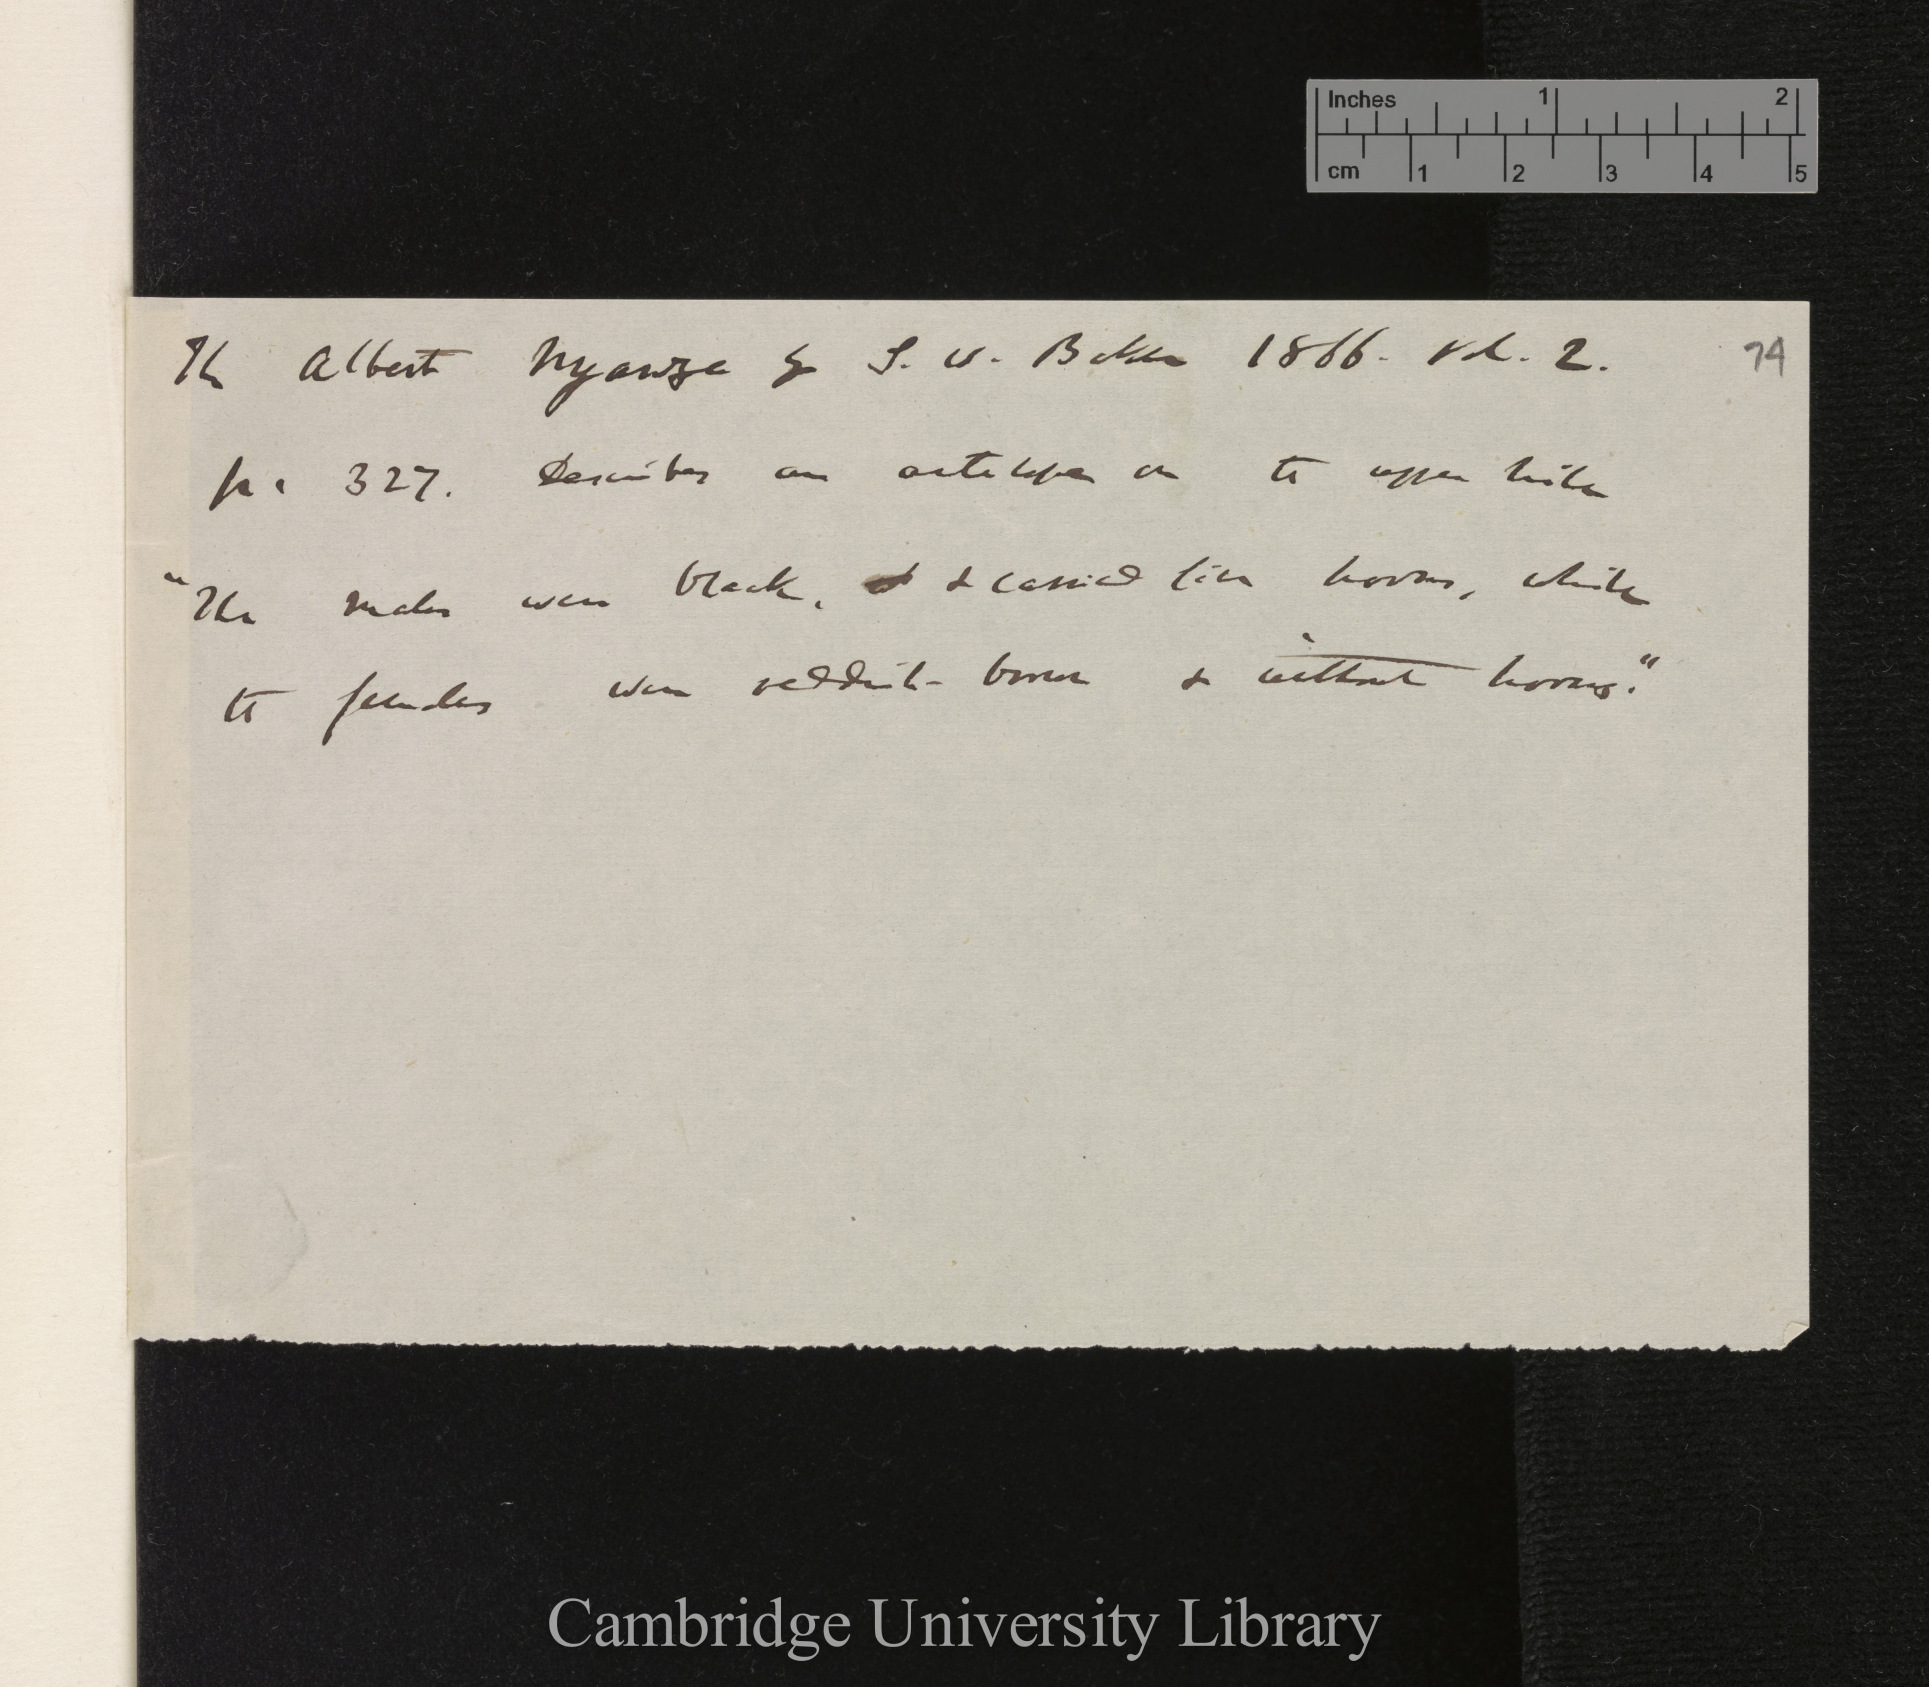 Inches 1 2
cm 1 2 3 4 5
The Albert Nyanza by S. W. Baker 1866. Vol. 2. 74
p. 327. Describes an antelope on the upper Nile
"The males were black, & carried fine horns, while
the females were reddish-brown & without horns."
Cambridge University Library